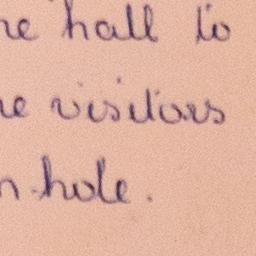 he hall to
he visitors
n-hole.